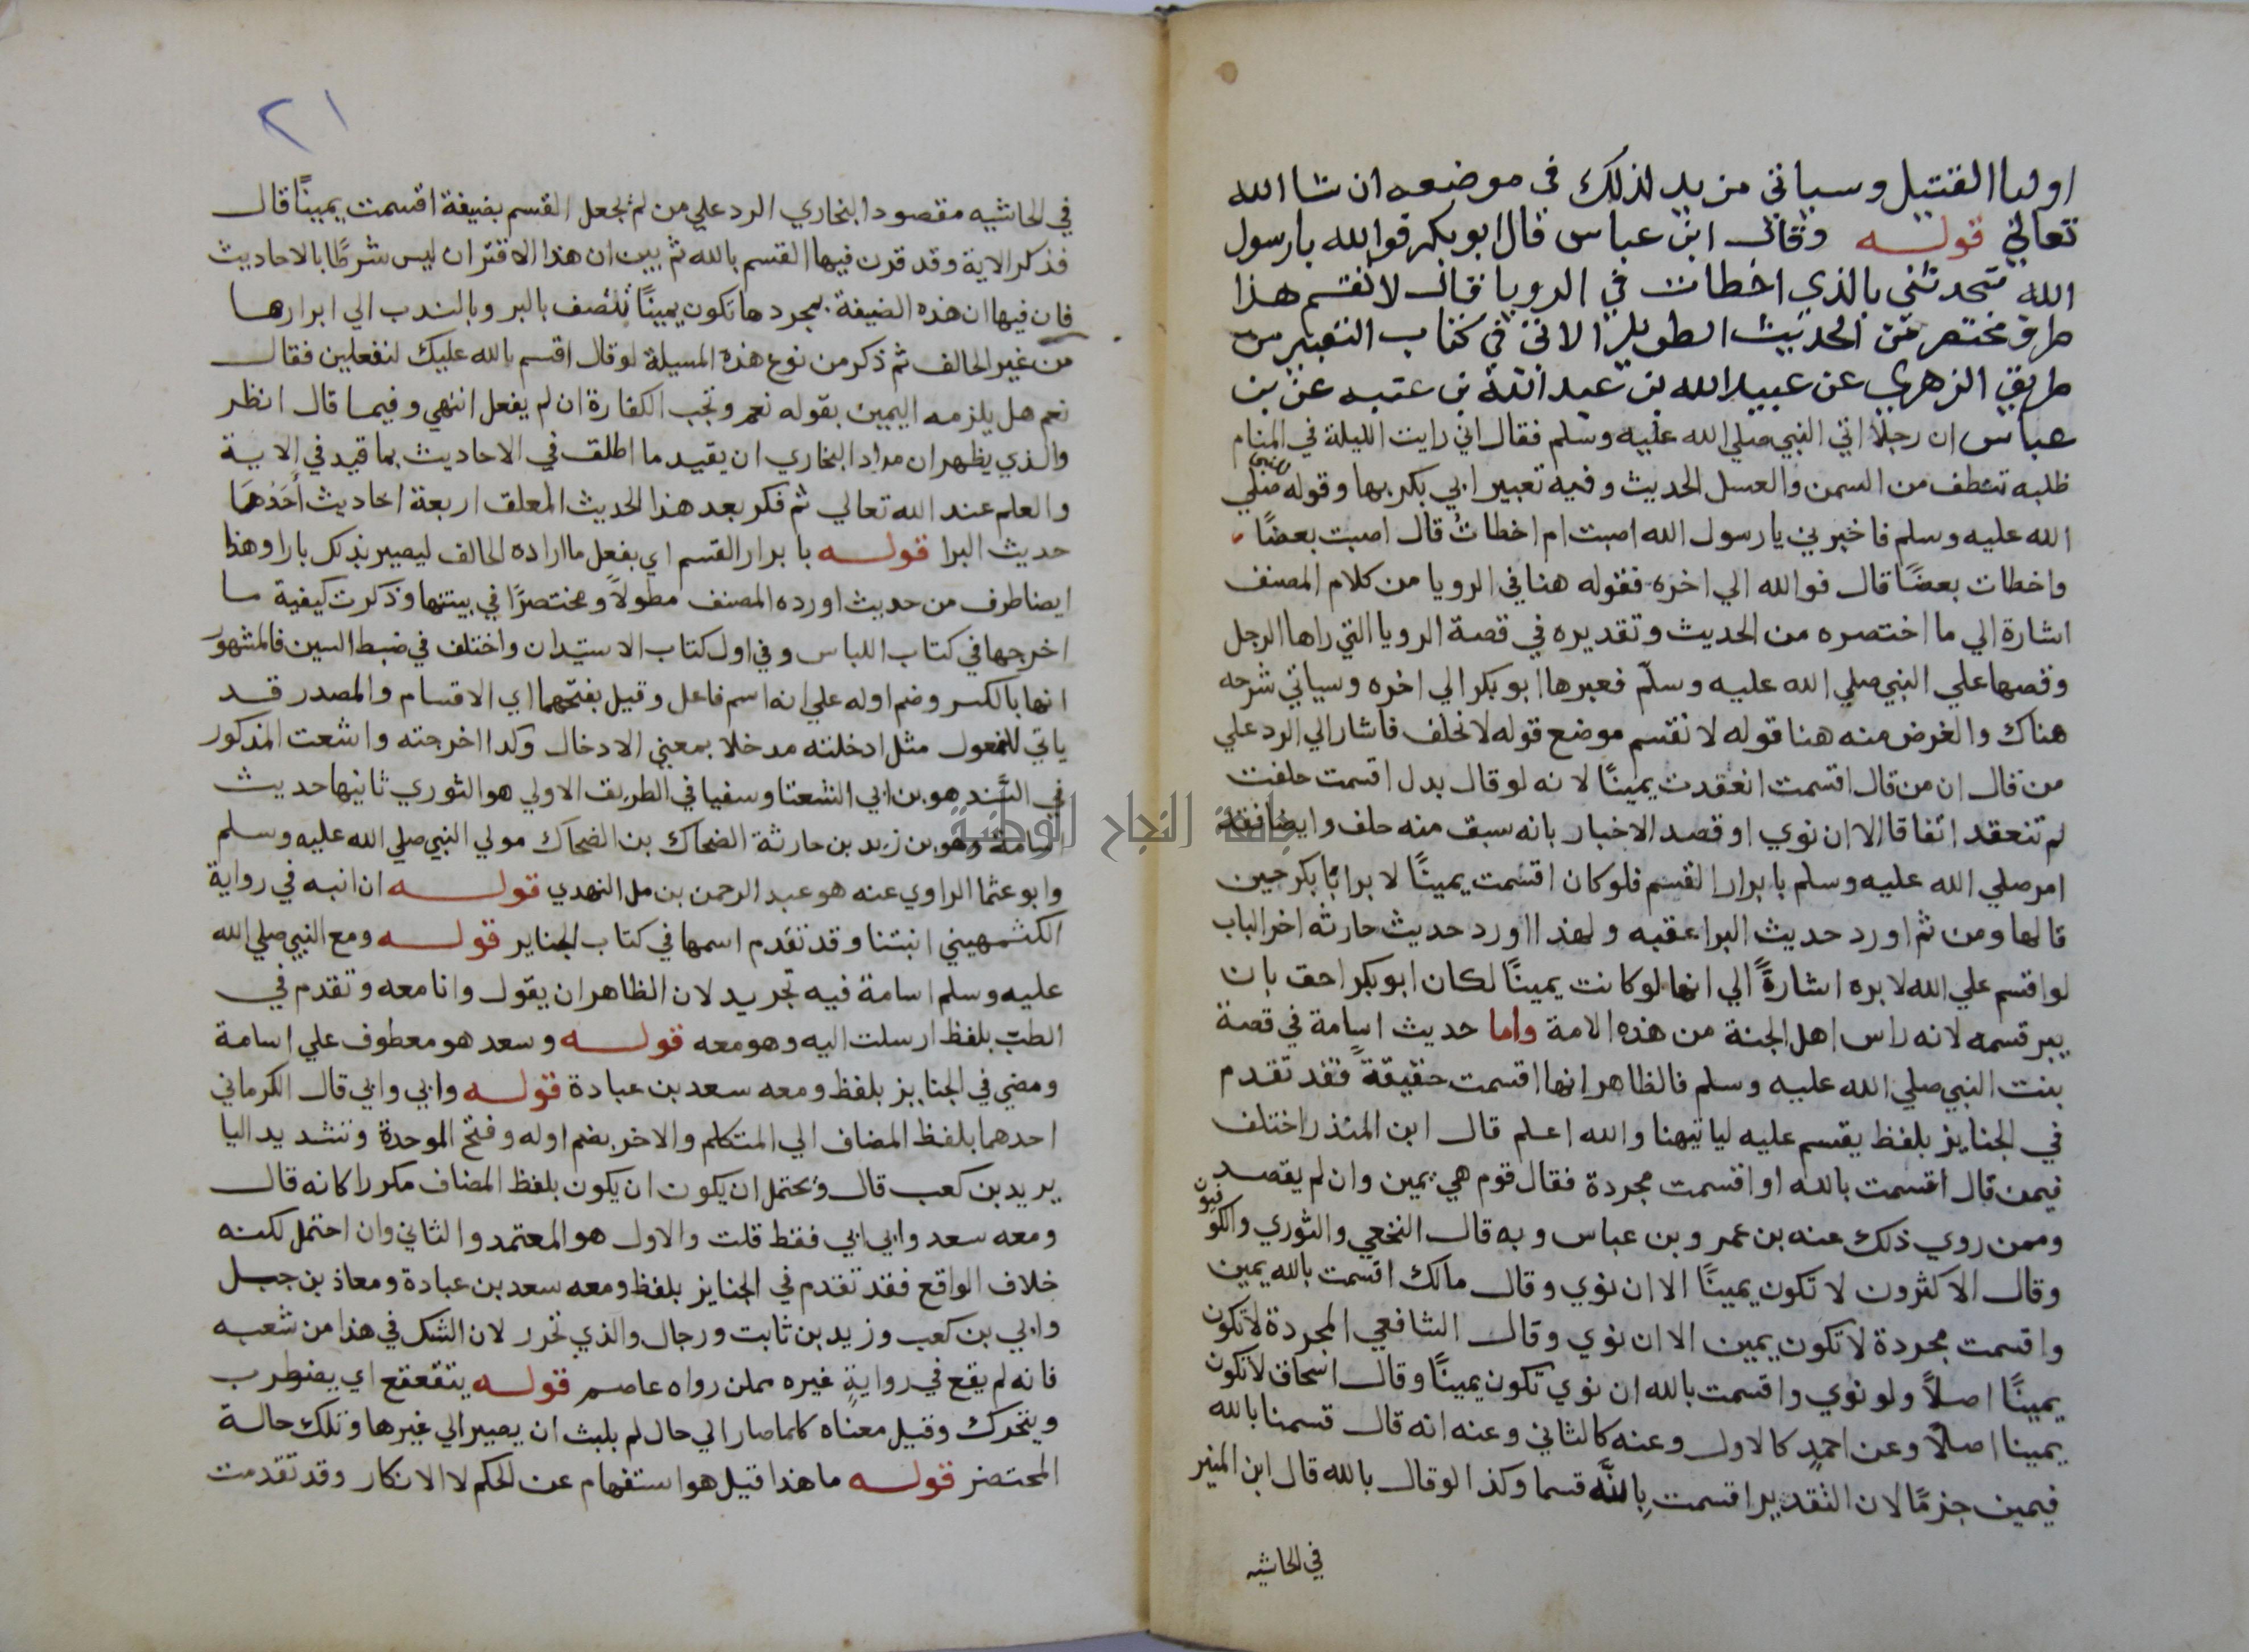 اوليا القتيل وسياتي مزيد لذلك في موضعه ان شا الله
تعالي قوله وقال ابن عباس قال ابو بكر فوالله يارسول
الله لتحدثني بالذي اخطات في الرويا قال لا تقسم هذا
طرف مختصر من الحديث الطويل الاتي في كتاب التعبير من
طريق الزهري عن عبيد الله بن عبد الله بن عتبه عن بن
عباس ان رجلا اتي النبي صلي الله عليه وسلم فقال اني رايت الليلة في المنام
ظلبه تنطف من السمن والعسل الحديث وفيه تعبير ابي بكر بها وقوله للنبي صلي
الله عليه وسلم فاخبرني يارسول الله اصبت ام اخطات قال اصبت بعضًا
واخطات بعضًا قال فوالله الي اخره فقوله هنا في الرويا من كلام المصنف
اشارة الي ما اختصره من الحديث وتقديره في قصة الرويا التي راها الرجل
وقصها علي النبي صلي الله عليه وسلم فعبرها ابو بكر الي اخره وسياتي شرحه
هناك والغرض منه هنا قوله لا تقسم موضع قوله لا تحلف فاشار الي الرد علي
من قال ان من قال اقسمت انعقدت يمينًا لانه لو قال بدل اقسمت حلفت
لم تنعقد اتفاقا الا ان نوي او قصد الاخبار بانه سبق منه حلف وايضا فقد
امر صلي الله عليه وسلم بابرار القسم فلو كان اقسمت يمينًا لابر ابا بكر حين
قالها ومن ثم اورد حديث البرا عقبه ولهذا اورد حديث حارثه اخر الباب
لو اقسم علي الله لابره اشارةً الي انها لو كانت يمينًا لكان ابو بكر احق بان
يبر قسمه لانه راس اهل الجنة من هذه الامة واما حديث اسامة في قصة
بنت النبي صلي الله عليه وسلم فالظاهر انها اقسمت حقيقةً فقد تقدم
في الجنايز بلفظ يقسم عليه لياتيهنا والله اعلم قال ابن المنذر اختلف
فيمن قال اقسمت بالله او اقسمت مجردة فقال قوم هي يمين وان لم يقصد
وممن روي ذلك عنه بن عمر وبن عباس وبه قال النخعي والثوري والكوفيون
وقال الاكثرون لا تكون يمينًا الا ان نوي وقال مالك اقسمت بالله يمين
واقسمت مجردة لا تكون يمين الا ان نوي وقال الشافعي المجردة لا تكون
يمينًا اصلاً ولو نوي واقسمت بالله ان نوي تكون يمينًا وقال اسحاق لا تكون
يمينا اصلاً وعن احمد كالاول وعنه كالثاني وعنه انه قال قسمنا بالله
فيمين جزمًا لان التقدير اقسمت بالله قسما وكذا لو قال بالله قال ابن المنير
في الحاشيه
٢١
في الحاشيه مقصود البخاري الرد علي من لم يجعل القسم بضيفة اقسمت يمينًا قال
فذكر الاية وقد قرن فيها القسم بالله ثم بين ان هذا الاقتران ليس شرطًا بالاحاديث
فان فيها ان هذه الضيفة بمجردها تكون يمينًا تتصف بالبر وبالندب الي ابرارها
من غير الحالف ثم ذكر من نوع هذه المسيلة لو قال اقسم بالله عليك لتفعلين فقال
نعم هل يلزمه اليمين بقوله نعم وتجب الكفارة ان لم يفعل انتهي وفيما قال انظر
والذي يظهر ان مراد البخاري ان يقيد ما اطلق في الاحاديث بما قيد في الاية
والعلم عند الله تعالي ثم فكر بعد هذا الحديث المعلق اربعة احاديث احدها
حديث البرا قوله بابرار القسم اي بفعل ما اراده الحالف ليصير بذلك بارا وهذا
ايضا طرف من حديث اورده المصنف مطولاً ومختصرًا في بيتها وذكرت كيفية ما
اخرجها في كتاب اللباس وفي اول كتاب الاستيدان واختلف في ضبط السين فالمشهور
انها بالكسر وضم اوله علي انه اسم فاعل وقيل بفتحهما اي الاقسام والمصدر قد
ياتي للمفعول مثل ادخلته مدخلا بمعني الادخال وكدا اخرجته واشعت المذكور
في السند هو بن ابي الشعتا وسفيا في الطريق الاولي هو الثوري ثانيها حديث
اسامة وهو بن زيد بن حارثة الضحاك بن الضحاك مولي النبي صلي الله عليه وسلم
وابو عثما الراوي عنه هو عبد الرحمن بن مل النهدي قوله ان انبه في رواية
الكشمهيني انبتنا وقد تقدم اسمها في كتاب الجناير قوله ومع النبي صلي الله
عليه وسلم اسامة فيه تجريد لان الظاهر ان يقول وانا معه وتقدم في
الطب بلفظ ارسلت اليه وهو معه قوله وسعد هو معطوف علي اسامة
ومضي في الجنايز بلفظ ومعه سعد بن عبادة قوله وابي وابي قال الكرماني
احدهما بلفظ المضاف الي المتكلم والاخر بضم اوله وفتح الموحدة وتشديد اليا
يريد بن كعب قال ويحتمل ان يكون ان يكون بلفظ المضاف مكررا كانه قال
ومعه سعد وابي ابي فقط قلت والاول هو المعتمد والثاني وان احتمل لكنه
خلاف الواقع فقد تقدم في الجنايز بلفظ ومعه سعد بن عبادة ومعاذ بن جبل
وابي بن كعب وزيد بن ثابت ورجال والذي تحرر لان الشك في هذا من شعبه
فانه لم يقع في رواية غيره ممن رواه عاصم قوله يتقعقع اي يضطرب
ويتحرك وقيل معناه كلما صار الي حال لم يلبث ان يصير الي غيرها وتلك حالة
المحتضر قوله ما هذا قيل هو استفهام عن الحكم لا الانكار وقد تقدمت
جامعة النجاح الوطنية